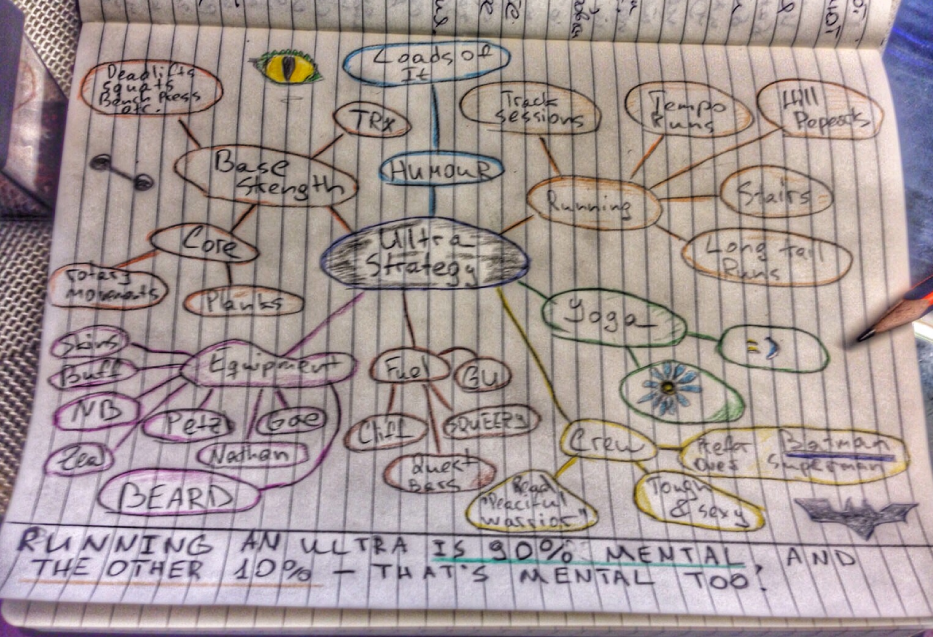 Loads of
It
Deadlifts
Squats
Bench Press
etc.
TRX
Track
sessions
Tempo
Runs
Hill
Repeats
HUMOUR
Base
Strength
Running
Stairs
Core
Ultra
Strategy
Long tail
Runs
Rotary
Movements
Planks
Yoga
= )
Skins
Buff
Equipment
Fuel
GU
NB
Petz
Gae
Chia
SQUEEZY
Zeal
Nathan
Quest
Bars
Crew
Prefer
Over
Batman
Superman
BEARD
Read
"Peaceful
Warrior"
Tough
& sexy
RUNNING AN ULTRA IS 90% MENTAL AND
THE OTHER 10% – THAT'S MENTAL TOO!